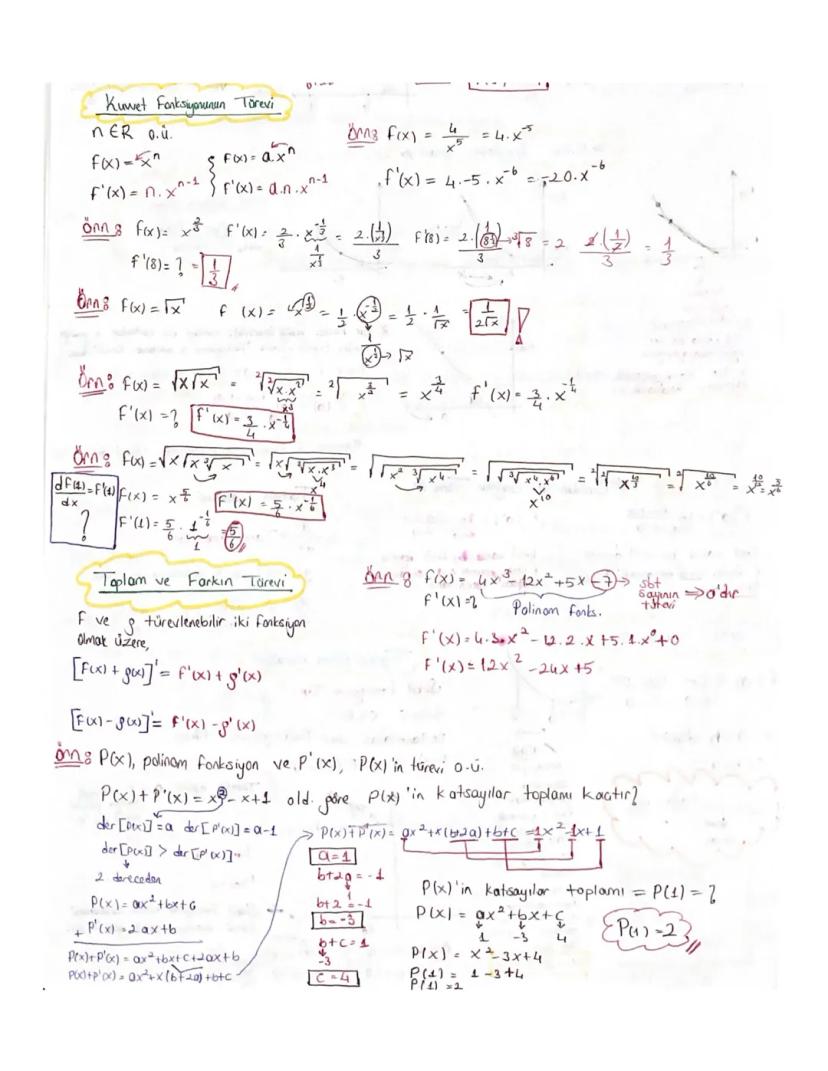 Kuvvet Fonksiyonunun Türevi
n∈R o.ü.
f(x) = x^n
f'(x) = n.x^(n-1)
f(x) = a.x^n
f'(x) = a.n.x^(n-1)
Örn: f(x) = 4/x^5 = 4.x^-5
f'(x) = 4.-5.x^-6 = -20.x^-6
Örn: f(x) = x^(2/3) f'(x) = 2/3 . x^(-1/3) = 2.(1/x^(1/3))/3 f'(8) = 2.(1/8^(1/3))/3 → ³√8 = 2 2.(1/2)/3 = 1/3
1/x^(1/3)
f'(8) = ? = 1/3
Örn: f(x) = √x f (x) = x^(1/2) = 1/2 . x^(-1/2) = 1/2 . 1/√x = 1/(2√x) !
1/x^(1/2) → √x
Örn: f(x) = √(x√x) = ²√(²√(x.x²)) = ²√(x^(3/2)) = x^(3/4) f'(x) = 3/4 . x^(-1/4)
x³
f'(x) = ? f'(x) = 3/4 . x^(-1/4)
Örn: f(x) = √(x√(x ³√x)) = √(x√(³√(x.x³))) = √(√(x² ³√(x⁴))) = √(√(³√(x⁴.x⁶))) = ²√(²√(x^(10/3))) = ²√(x^(10/6)) = x^(10/12) = x^(5/6)
x⁴
x^10
df(1)/dx = f'(1)
?
f(x) = x^(5/6) f'(x) = 5/6 . x^(-1/6)
f'(1) = 5/6 . 1^(-1/6) = 5/6
1
Toplam ve Farkın Türevi
f ve g türevlenebilir iki fonksiyon
olmak üzere,
[f(x) + g(x)]' = f'(x) + g'(x)
[f(x) - g(x)]' = f'(x) - g'(x)
Örn: f(x) = 4x³ - 12x² + 5x - 7 → sbt sayının türevi ⇒ 0'dır
f'(x) = ? Polinom fonks.
f'(x) = 4.3.x² - 12.2.x + 5.1.x⁰ + 0
f'(x) = 12x² - 24x + 5
Örn: P(x), polinom fonksiyon ve P'(x), P(x)'in türevi o.ü.
P(x) + P'(x) = x² - x + 1 old. göre P(x)'in katsayılar toplamı kaçtır?
der[P(x)] = a der[P'(x)] = a-1
der[P(x)] > der[P'(x)]
2. dereceden
P(x) = ax² + bx + c
+ P'(x) = 2ax + b
P(x) + P'(x) = ax² + bx + c + 2ax + b
P(x) + P'(x) = ax² + x(b+2a) + b + c
→ P(x) + P'(x) = ax² + x(b+2a) + b + c = 1x² - 1x + 1
a = 1
b + 2a = -1
1
b + 2 = -1
b = -3
b + c = 1
-3
c = 4
P(x)'in katsayılar toplamı = P(1) = ?
P(x) = ax² + bx + c
1 -3 4
P(x) = x² - 3x + 4
P(1) = 1 - 3 + 4
P(1) = 2
P(1) = 2